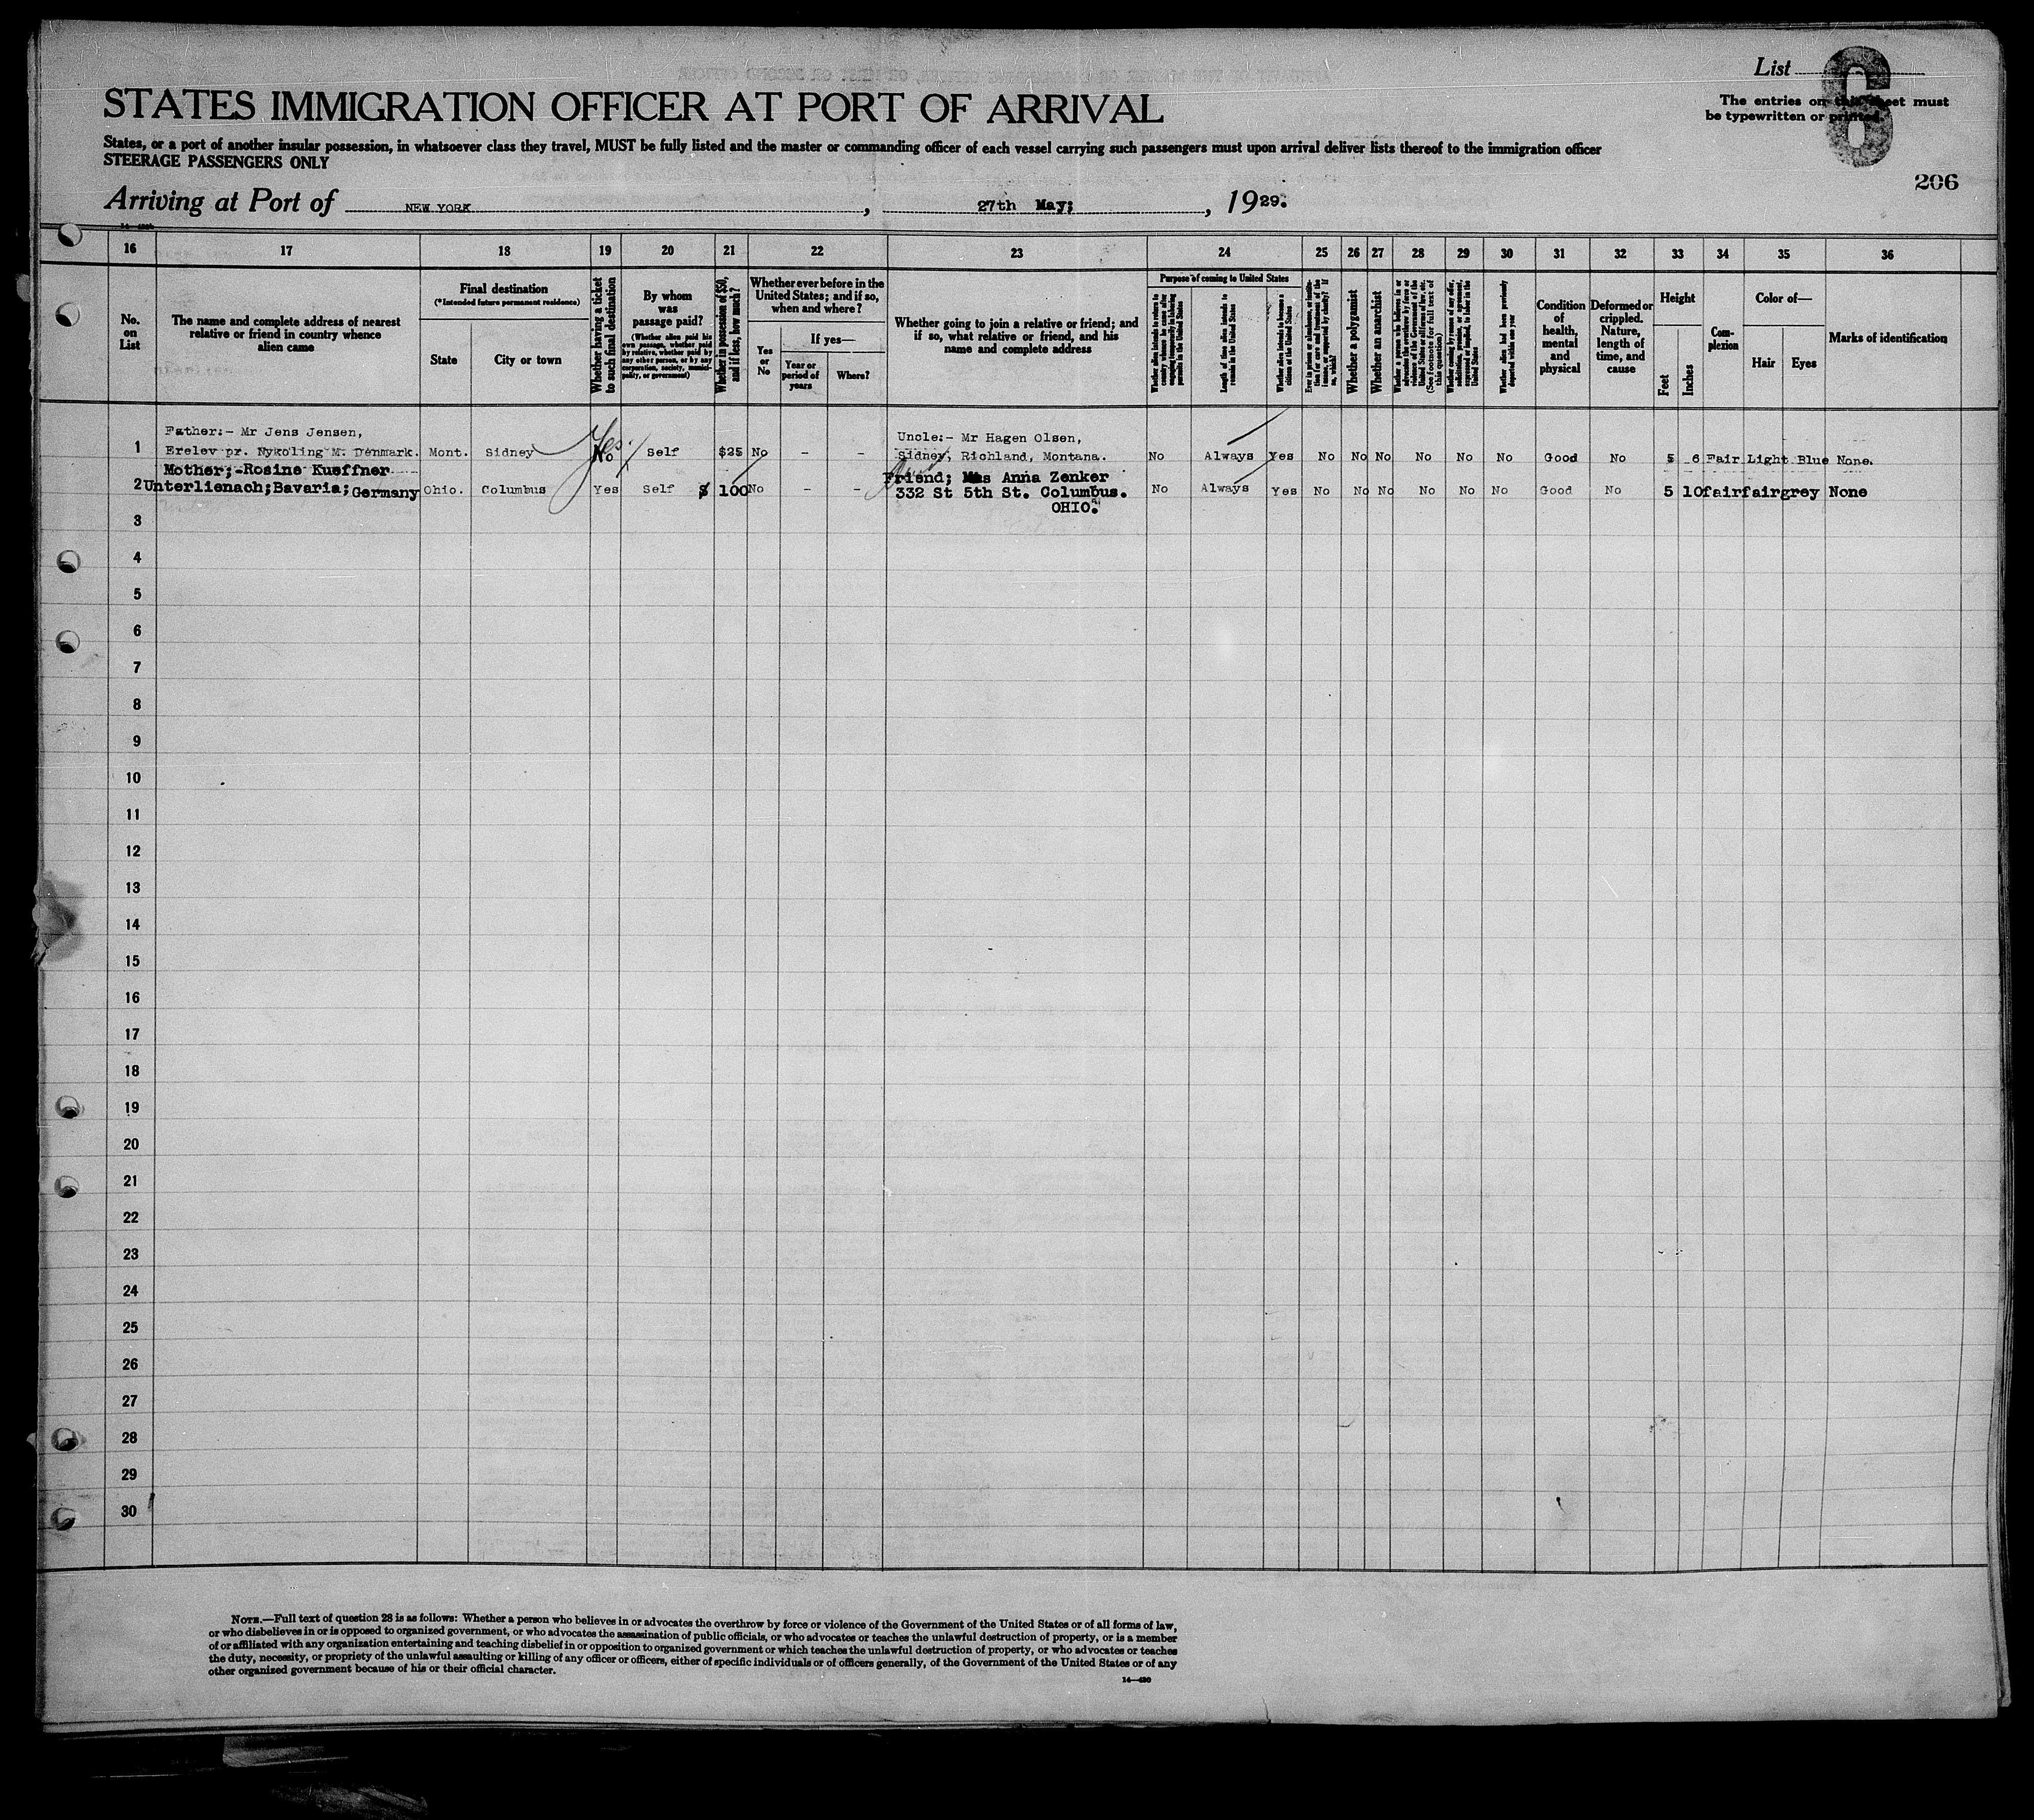 List 6
STATES IMMIGRATION OFFICER AT PORT OF ARRIVAL
The entries on this sheet must
be typewritten or printed.
States, or a port of another insular possession, in whatsoever class they travel, MUST be fully listed and the master or commanding officer of each vessel carrying such passengers must upon arrival deliver lists thereof to the immigration officer
STEERAGE PASSENGERS ONLY
206
Arriving at Port of NEW YORK, 27th May; , 1929.
16 17 18 19 20 21 22 23 24 25 26 27 28 29 30 31 32 33 34 35 36
No. on List
The name and complete address of nearest
relative or friend in country whence
alien came
Final destination
(*Intended future permanent residence)
State
City or town
Whether having a ticket
to such final destination
By whom
was
passage paid?
(Whether alien paid his
own passage, whether paid
by relative, whether paid by
any other person, or by any
corporation, society, munici-
pality, or government)
Whether in possession of $50,
and if less, how much?
Whether ever before in the
United States; and if so,
when and where?
Yes
or
No
If yes—
Year or
period of
years
Where?
Whether going to join a relative or friend; and
if so, what relative or friend, and his
name and complete address
Purpose of coming to United States
Whether alien intends to return to
country whence he came after
engaging temporarily in laboring
pursuits in the United States
Length of time alien intends to
remain in the United States
Whether alien intends to become a
citizen of the United States
Ever in prison or almshouse, or institu-
tion for care and treatment of the
insane, or supported by charity? If
so, which?
Whether a polygamist
Whether an anarchist
Whether a person who believes in or
advocates the overthrow by force or
violence of the Government of the
United States or all forms of law, etc.
(See footnote for full text of
this question)
Whether coming by reason of any offer,
solicitation, promise, or agreement,
expressed or implied, to labor in the
United States
Whether alien had been previously
deported within one year
Condition
of
health,
mental
and
physical
Deformed or
crippled.
Nature,
length of
time, and
cause
Height
Feet
Inches
Com-
plexion
Color of—
Hair
Eyes
Marks of identification
Father:- Mr Jens Jensen,
Uncle:- Mr Hagen Olsen,
1 Erslev pr. Nykoling M. Denmark. Mont. Sidney Yes No Self $25 No - - Sidney, Richland, Montana. No Always Yes No No No No No No Good No 5 6 Fair Light Blue None.
Mother;-Rosine Kueffner
Friend; Mas Anna Zenker
2 Unterlienach;Bavaria;Germany Ohio. Columbus Yes Self $ 100 No - - 332 St 5th St. Columbus. No Always Yes No No No No No No Good No 5 10 fair fair grey None
OHIO.
3
4
5
6
7
8
9
10
11
12
13
14
15
16
17
18
19
20
21
22
23
24
25
26
27
28
29
30
NOTE.—Full text of question 28 is as follows: Whether a person who believes in or advocates the overthrow by force or violence of the Government of the United States or of all forms of law,
or who disbelieves in or is opposed to organized government, or who advocates the assassination of public officials, or who advocates or teaches the unlawful destruction of property, or is a member
of or affiliated with any organization entertaining and teaching disbelief in or opposition to organized government or which teaches the unlawful destruction of property, or who advocates or teaches
the duty, necessity, or propriety of the unlawful assaulting or killing of any officer or officers, either of specific individuals or of officers generally, of the Government of the United States or of any
other organized government because of his or their official character.
14—430